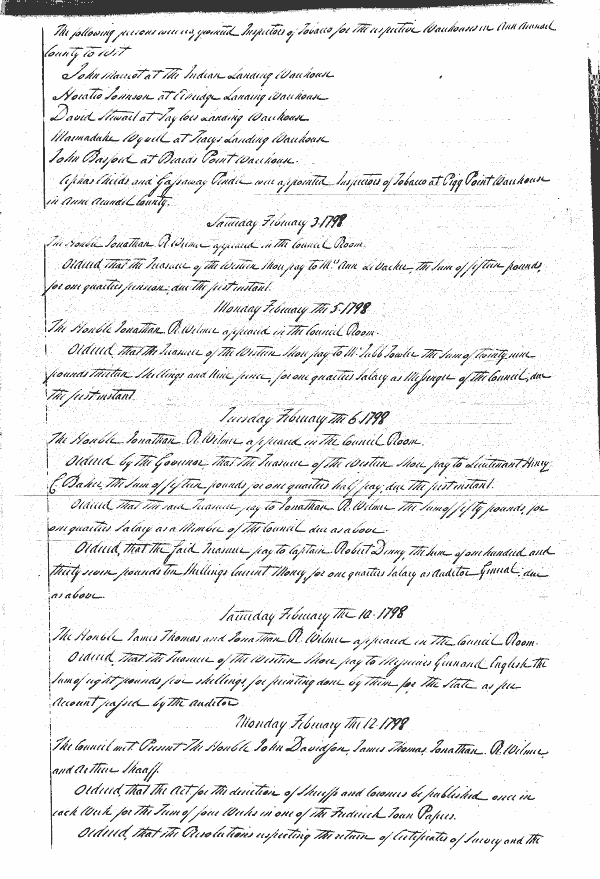 The following persons were appointed Inspectors of Tobacco for the respective Warehouses in Ann Arundel
County to wit
John Marriot at the Indian Landing Warehouse
Horatio Johnson at Elridge Landing Warehouse
David Steuart at Taylors Landing Warehouse
Marmaduke Wyvell at Tracys Landing Warehouse
John Basford at Beards Point Warehouse.
Cephas Childs and Gassaway Pindle were appointed Inspectors of Tobacco at Pigg Point Warehouse
in Anne Arundel County.
Saturday February 3. 1798
The Honble Jonathan R. Wilmer appeared in the Council Room.
Ordered, that the Treasurer of the Western Shore pay to Mrs Ann the Sum of fifteen pounds,
for one quarters pension; due the first instant.
Monday February the 5. 1798
The Honble Jonathan R. Wilmer appeared in the Council Room.
Ordered, that the Treasurer of the Western Shore pay to Mr Jubb Fowler the Sum of twenty nine
pounds thirteen Shillings and Nine pence, for one quarters Salary as Messenger of the Council, due
the first instant.
Tuesday February the 6. 1798
The Honble Jonathan R. Wilmer appeared in the Council Room.
Ordered by the Governor that the Treasurer of the Western Shore pay to Lieutenant Henry
C. Baker the Sum of fifteen pounds, for one quarters half pay, due the first instant.
Ordered that the said Treasurer pay to Jonathan R. Wilmer the Sum of fifty pounds, for
one quarters Salary as a Member of the Council due as above.
Ordered, that the said Treasurer pay to Captain Robert Denny, the Sum of one hundred and
thirty seven pounds ten Shillings Current Money, for one quarters Salary as Auditor General: due
as above.
Saturday February the 10. 1798
The Honble James Thomas and Jonathan R. Wilmer appeared in the Council Room.
Ordered, that the Treasurer of the Western Shore pay to Messieurs Green and English the
Sum of eight pounds five Shillings for printing done by them for the State as per
Account passed by the Auditor
Monday February the 12. 1798
The Council met Present The Honble John Davidson, James Thomas, Jonathan R. Wilmer,
and Arthur Shaaff.
Ordered that the Act for the direction of Sheriffs and Coroners be published once in
each Week for the Term of four Weeks in one of the Frederick Town Papers.
Ordered, that the Resolutions respecting the return of Certificates of Survey and the